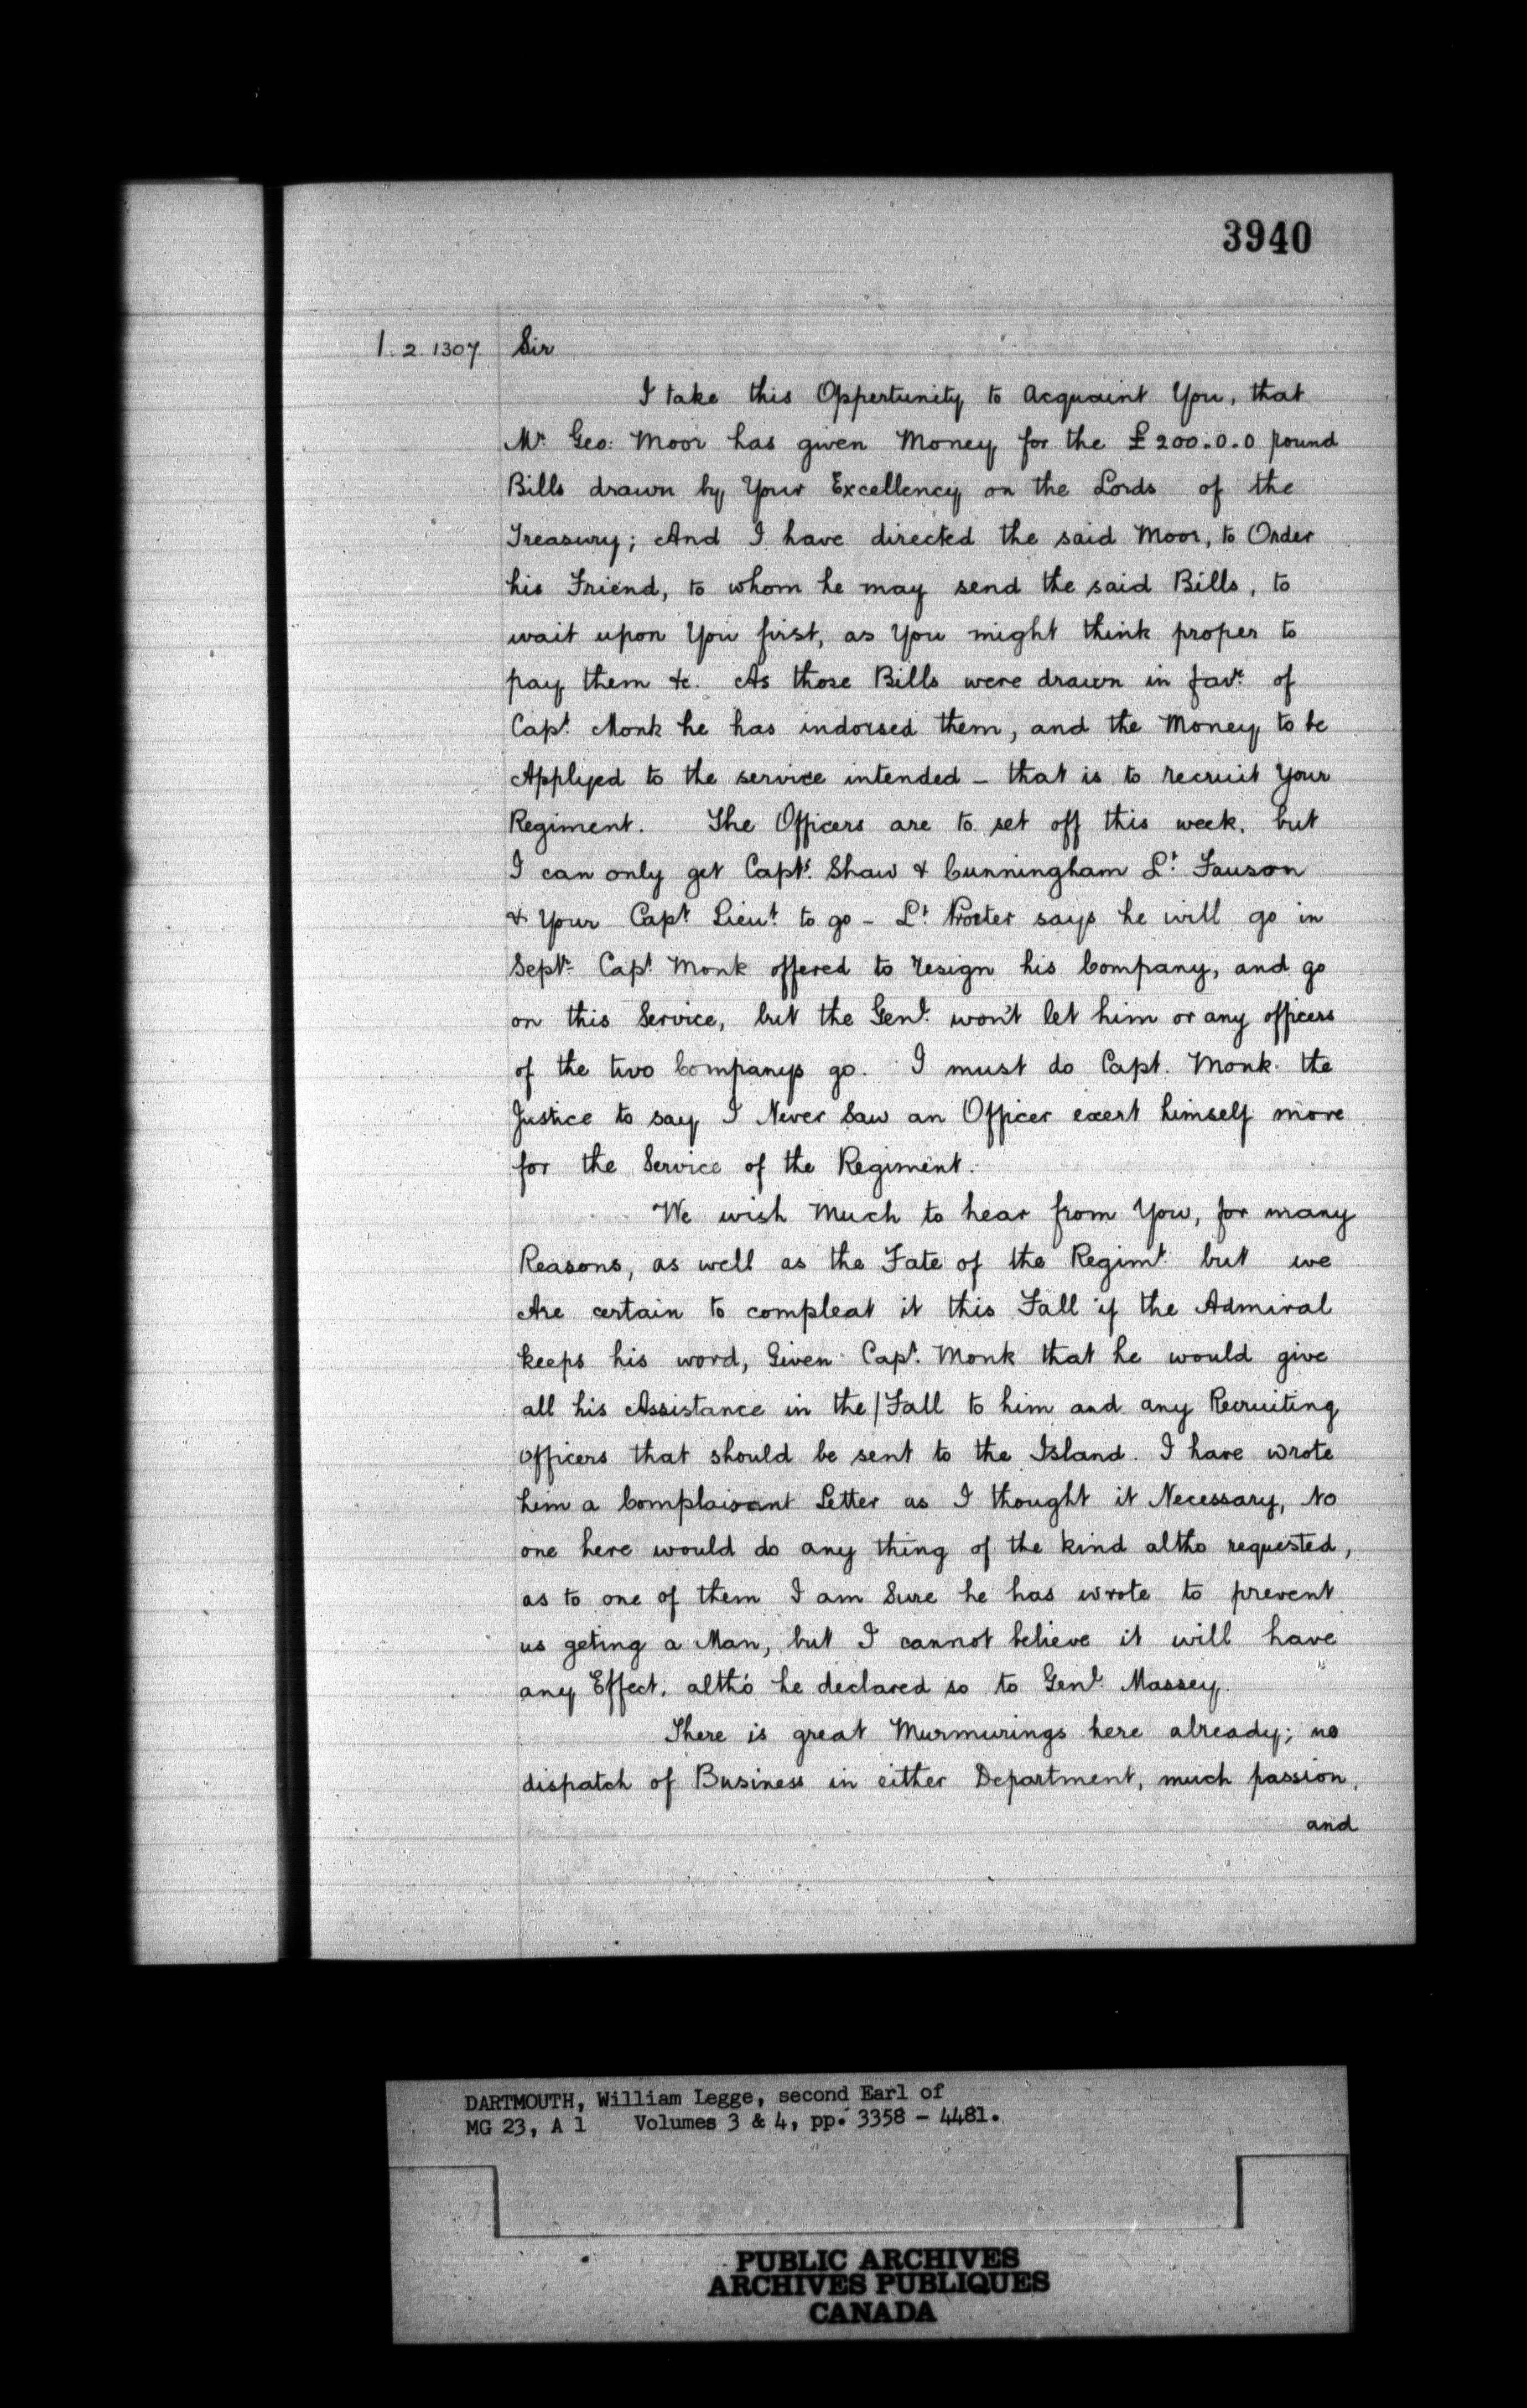 3940
1.2.1307 Sir
I take this Oppertunity to Acquaint You, that
Mr. Geo: Moor has given Money for the £200.0.0 pound
Bills drawn by Your Excellency on the Lords of the
Treasury; And I have directed the said Moor, to Order
his Friend, to whom he may send the said Bills, to
wait upon You first, as You might think proper to
pay them &c. As those Bills were drawn in favr. of
Capt. Monk he has indorsed them, and the Money to be
Applyed to the service intended - that is to recruit Your
Regiment. The Officers are to set off this week, but
I can only get Capts. Shaw & Cunningham Lt. Fauson
& Your Capt Lieut. to go - Lt. Procter says he will go in
Septr. Capt. Monk offered to resign his Company, and go
on this Service, but the Genl. won't let him or any officers
of the two Companys go. I must do Capt. Monk the
Justice to say I Never Saw an Officer exert himself more
for the Service of the Regiment.
We wish Much to hear from You, for many
Reasons, as well as the Fate of the Regimt. but we
Are certain to compleat it this Fall if the Admiral
keeps his word, Given Capt. Monk that he would give
all his Assistance in the/Fall to him and any Recruiting
officers that should be sent to the Island. I have wrote
him a Complaisant Letter as I thought it Necessary, No
one here would do any thing of the kind altho requested,
as to one of them I am Sure he has wrote to prevent
us geting a Man, but I cannot believe it will have
any Effect, altho' he declared so to Genl. Massey.
There is great Murmurings here already; no
dispatch of Business in either Department, much passion,
and
DARTMOUTH, William Legge, second Earl of
MG 23, A 1 Volumes 3 & 4, pp. 3358 - 4481.
PUBLIC ARCHIVES
ARCHIVES PUBLIQUES
CANADA